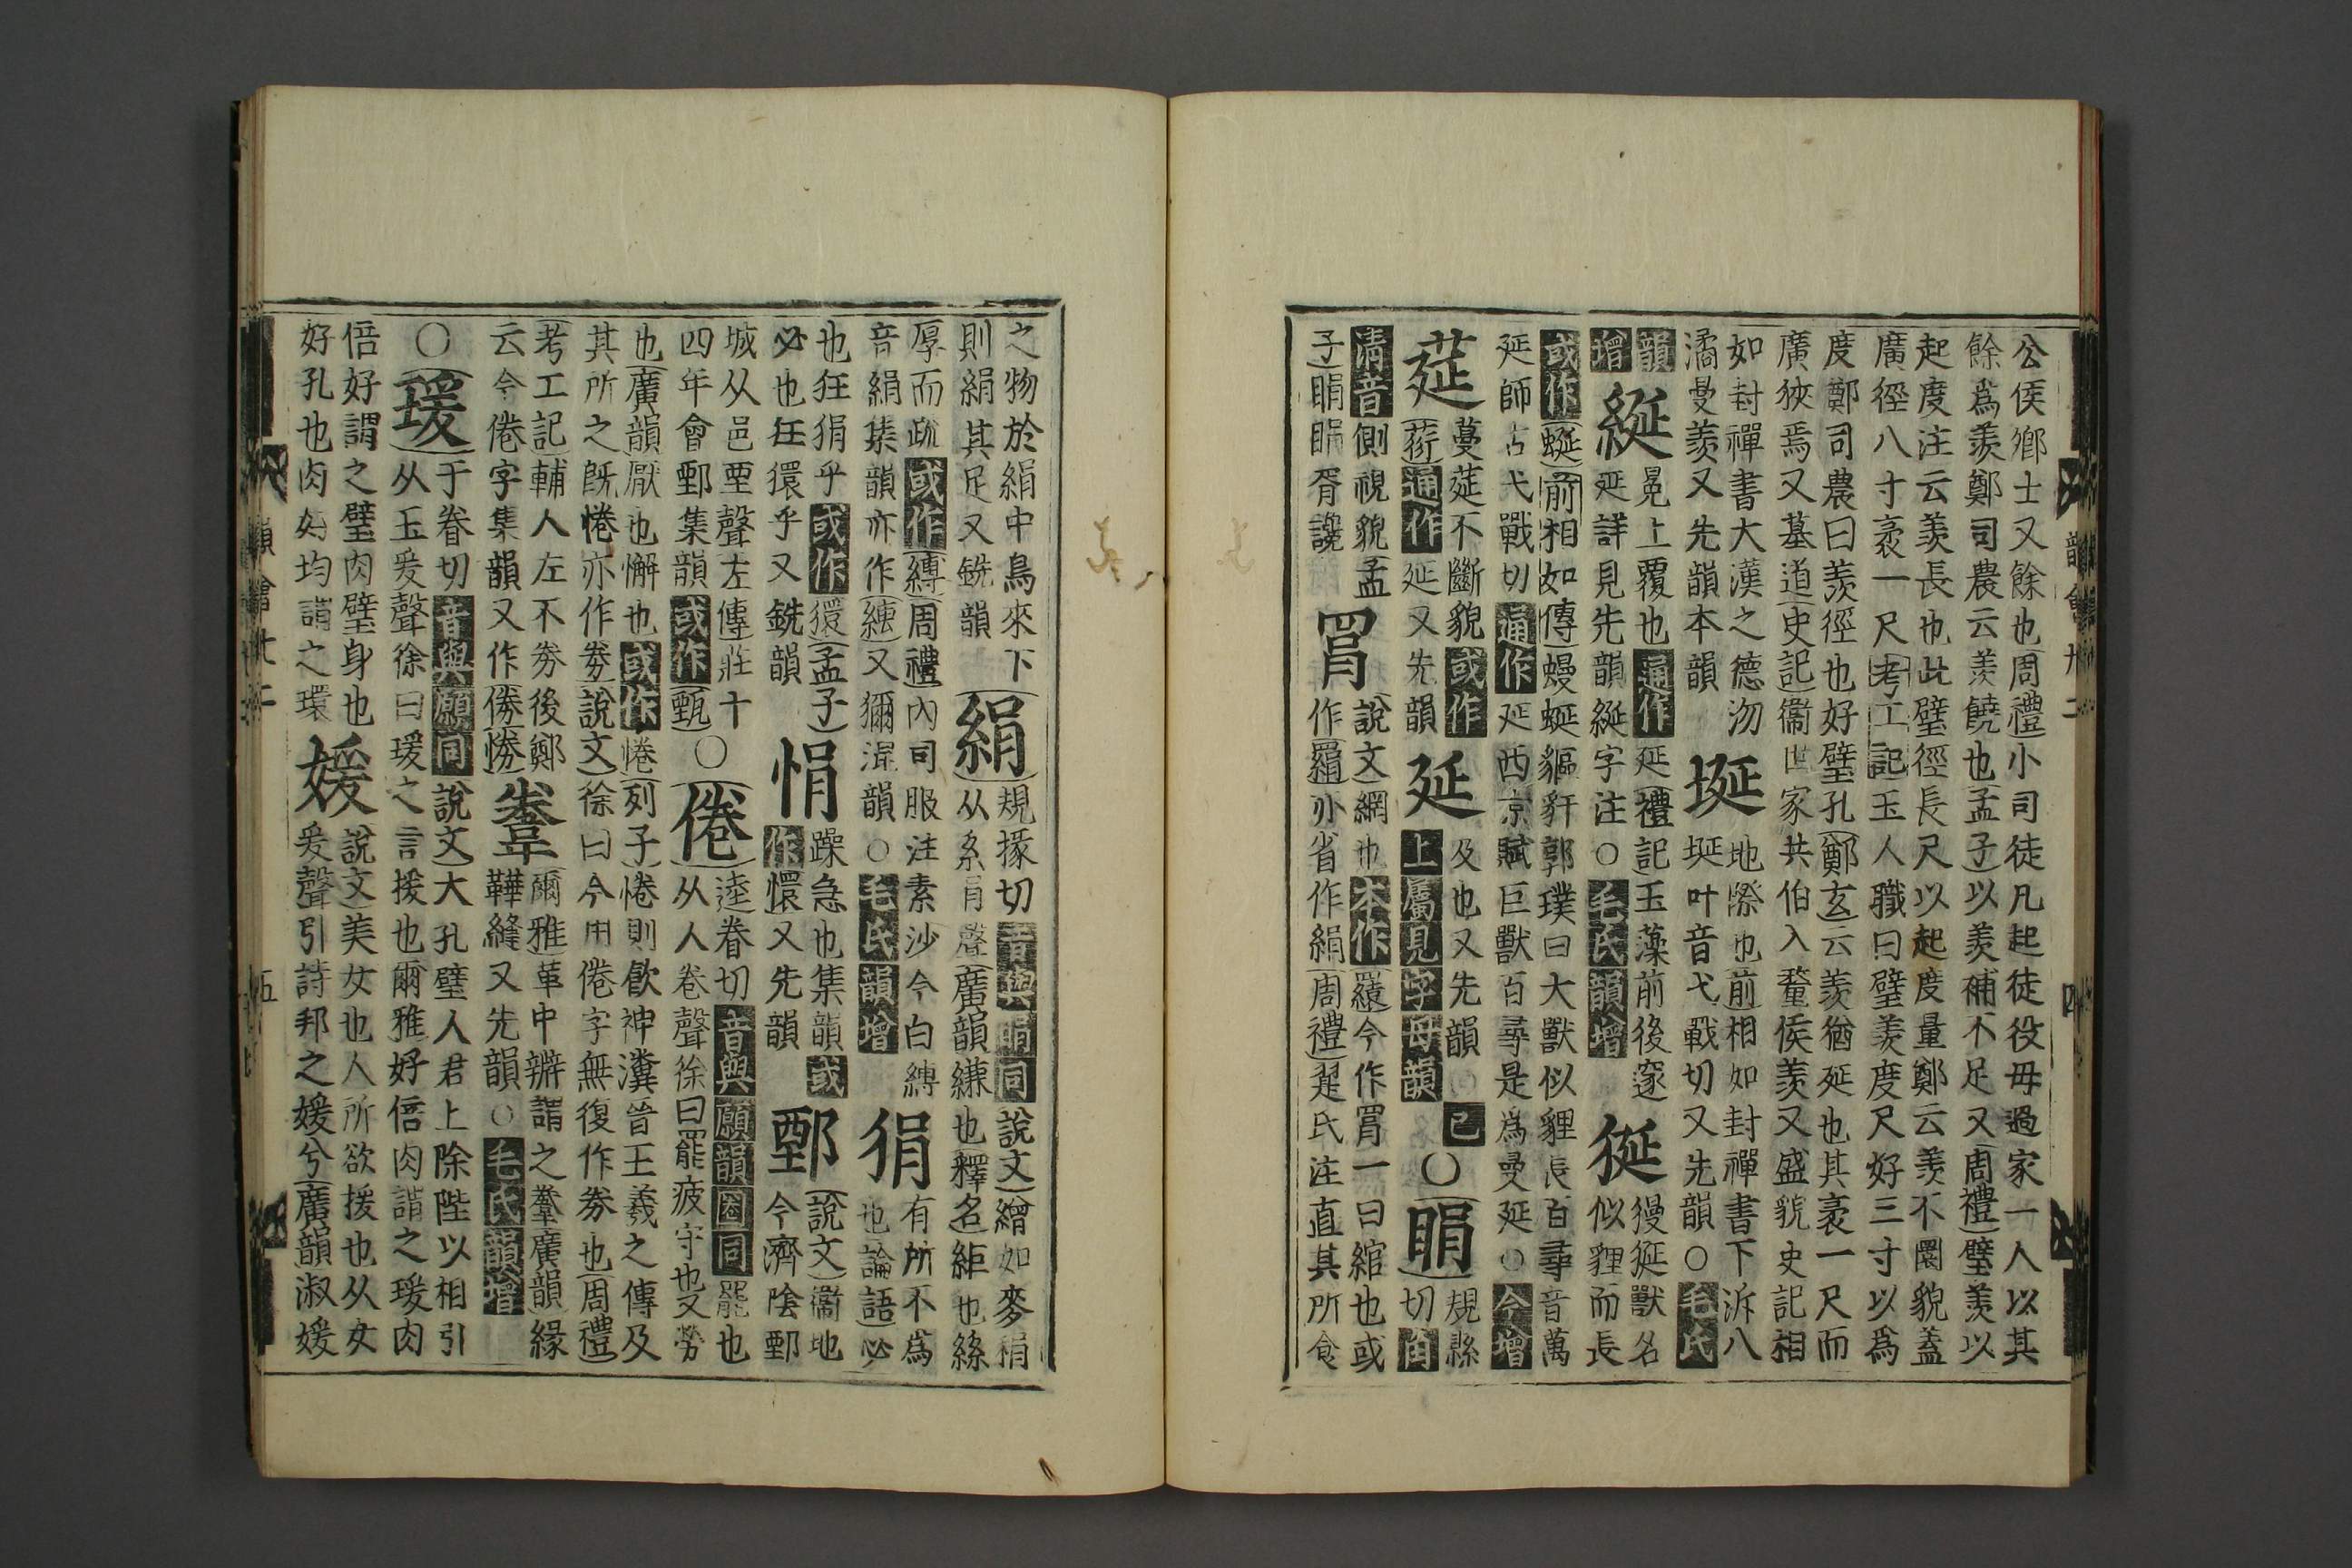 公侯鄉士又餘也周禮小司徒凡起徒役毋過家一人以其
餘爲羨鄭司農云羨饒也孟子以羨補不足又周禮璧羨以
起度注云羨長也此璧徑長尺以起度量鄭云羨不圜貌蓋
廣徑八寸袤一尺考工記玉人職曰璧羨度尺好三寸以爲
度鄭司農曰羨徑也好璧孔鄭玄云羨猶延也其袤一尺而
廣狹焉又墓道史記衞世家共伯入釐侯羨又盛貌史記相
如封禪書大漢之德沕
潏曼羨又先韻本韻
埏
地際也前相如封禪書下泝八
埏叶音弋戰切又先韻○毛氏
韻
增
綖
冕上覆也通作延禮記玉藻前後邃
延詳見先韻綖字注○毛氏韻增
狿
獌狿獸名
似貍而長
或作蜒前相如傳蟃蜒貙豻郭璞曰大獸似貍長百尋音萬
延師古弋戰切通作延西京賦巨獸百尋是爲曼延○今增
莚
蔓莚不斷貌或作
䓂通作延又先韻
延
及也又先韻
上屬見字母韻
已
○
睊
規縣
切角
清音側視貌孟
子睊睊胥讒
罥
說文網也本作䍗今作罥一曰綰也或
作羂亦省作絹周禮翨氏注直其所食
之物於絹中鳥來下
則絹其足又銑韻
絹
規掾切音與睊同說文繒如麥䅌
从糸肙聲廣韻縑也釋名絹也絲
厚而疏或作縳周禮內司服注素沙今白縳
音絹集韻亦作䌸又獮混韻○毛氏韻增
狷
有所不爲
也論語必
也狂狷乎或作獧孟子
必也狂獧乎又銑韻
悁
躁急也集韻或
作懁又先韻
鄄
說文衞地
今濟陰鄄
城从邑垔聲左傳莊十
四年會鄄集韻或作甄
○
倦
逵眷切音與願韻圈同罷也
从人卷聲徐曰罷疲字也又勞
也廣韻厭也懈也或作惓列子惓則飲神瀵晉王羲之傳及
其所之旣惓亦作劵說文徐曰今用倦字無復作劵也周禮
考工記輔人左不劵後鄭
云今倦字集韻又作㑞㢧
韏
爾雅革中辨謂之韏廣韻緣
鞾縫又先韻○毛氏韻增
○
瑗
于眷切音與願同說文大孔璧人君上除陛以相引
从玉爰聲徐曰瑗之言援也爾雅好倍肉謂之瑗肉
倍好謂之璧肉璧身也
好孔也肉好均謂之環
媛
說文美女也人所欲援也从女
爰聲引詩邦之媛兮廣韻淑媛